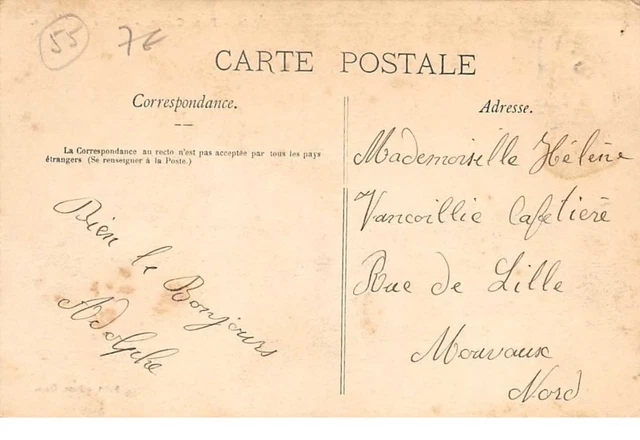 55
7€
CARTE POSTALE
Correspondance.
La Correspondance au recto n'est pas acceptée par tous les pays
étrangers (Se renseigner à la Poste.)
Bien le Bonjours
Adolphe
Adresse.
Mademoiselle Hélène
Vancoillie Cafetière
Rue de Lille
Mouvaux
Nord